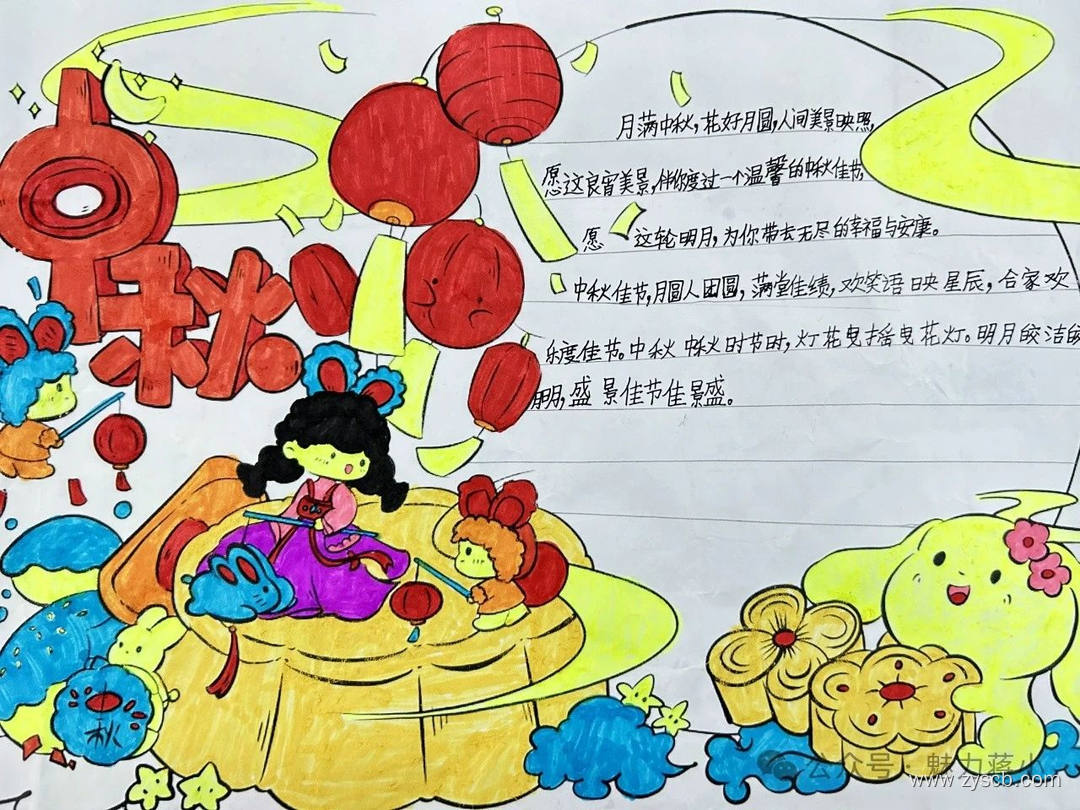 中秋
月满中秋,花好月圆,人间美景映照,
愿这良宵美景,伴你度过一个温馨的中秋佳节
愿 这轮明月,为你带去无尽的幸福与安康。
中秋佳节,月圆人团圆,满堂佳绩,欢笑语映星辰,合家欢
乐度佳节。中秋 中秋时节时,灯花曳摇曳花灯。明月皎洁皎
朋,盛 景佳节佳景盛。
秋
公众号·魅力蒋小
www.zyscb.com